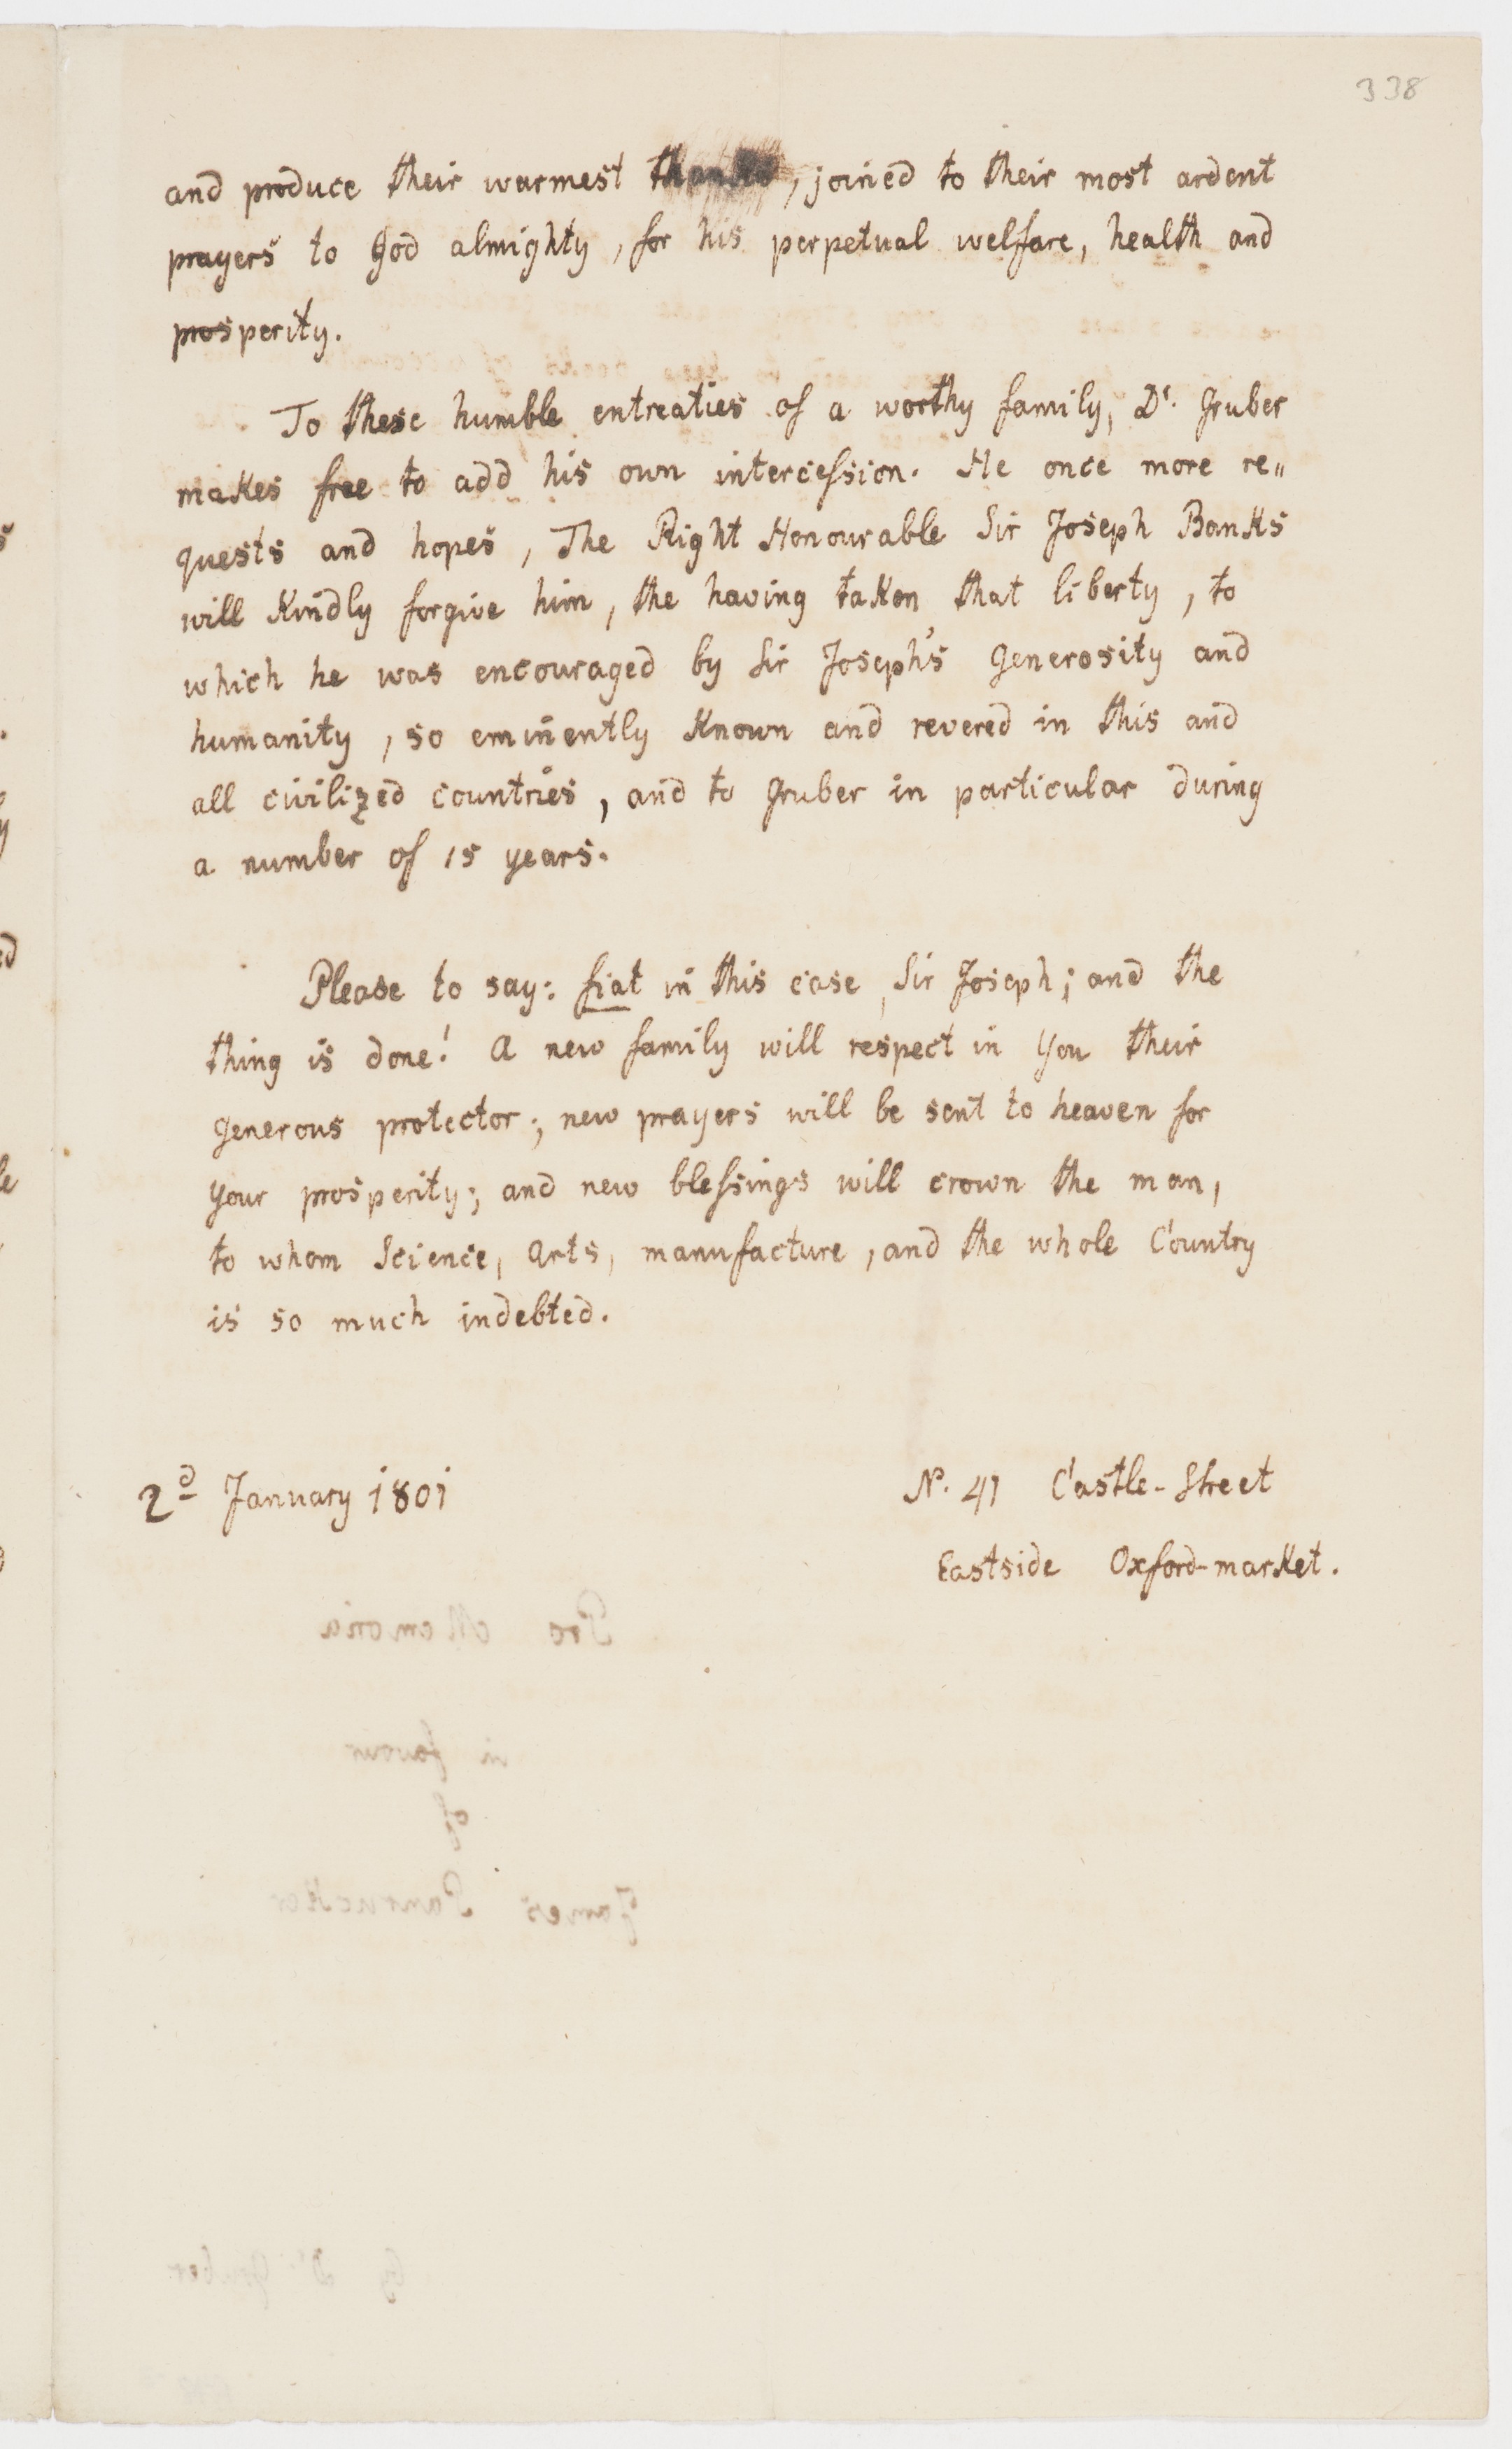 338
and produce their warmest thanks, joined to their most ardent
prayers to God almighty, for his perpetual welfare, health and
prosperity.
To these humble entreaties of a worthy family, Dr. Gruber
makes free to add his own intercession. He once more re„
quests and hopes, The Right Honourable Sir Joseph Banks
will Kindly forgive him, the having taken that liberty, to
which he was encouraged by Sir Joseph's Generosity and
humanity, so eminently Known and revered in this and
all civilized countries, and to Gruber in particular during
a number of 15 years.
Please to say: fiat in this case, Sir Joseph; and the
thing is done! A new family will respect in You their
Generous protector; new prayers will be sent to heaven for
Your prosperity; and new blessings will crown the man,
to whom Science, Arts, manufacture, and the whole Country
is so much indebted.
2d January 1801
No. 41 Castle-Street
Eastside Oxford-market.
Pro Memoria
in favour
of
James
by Dr Gruber